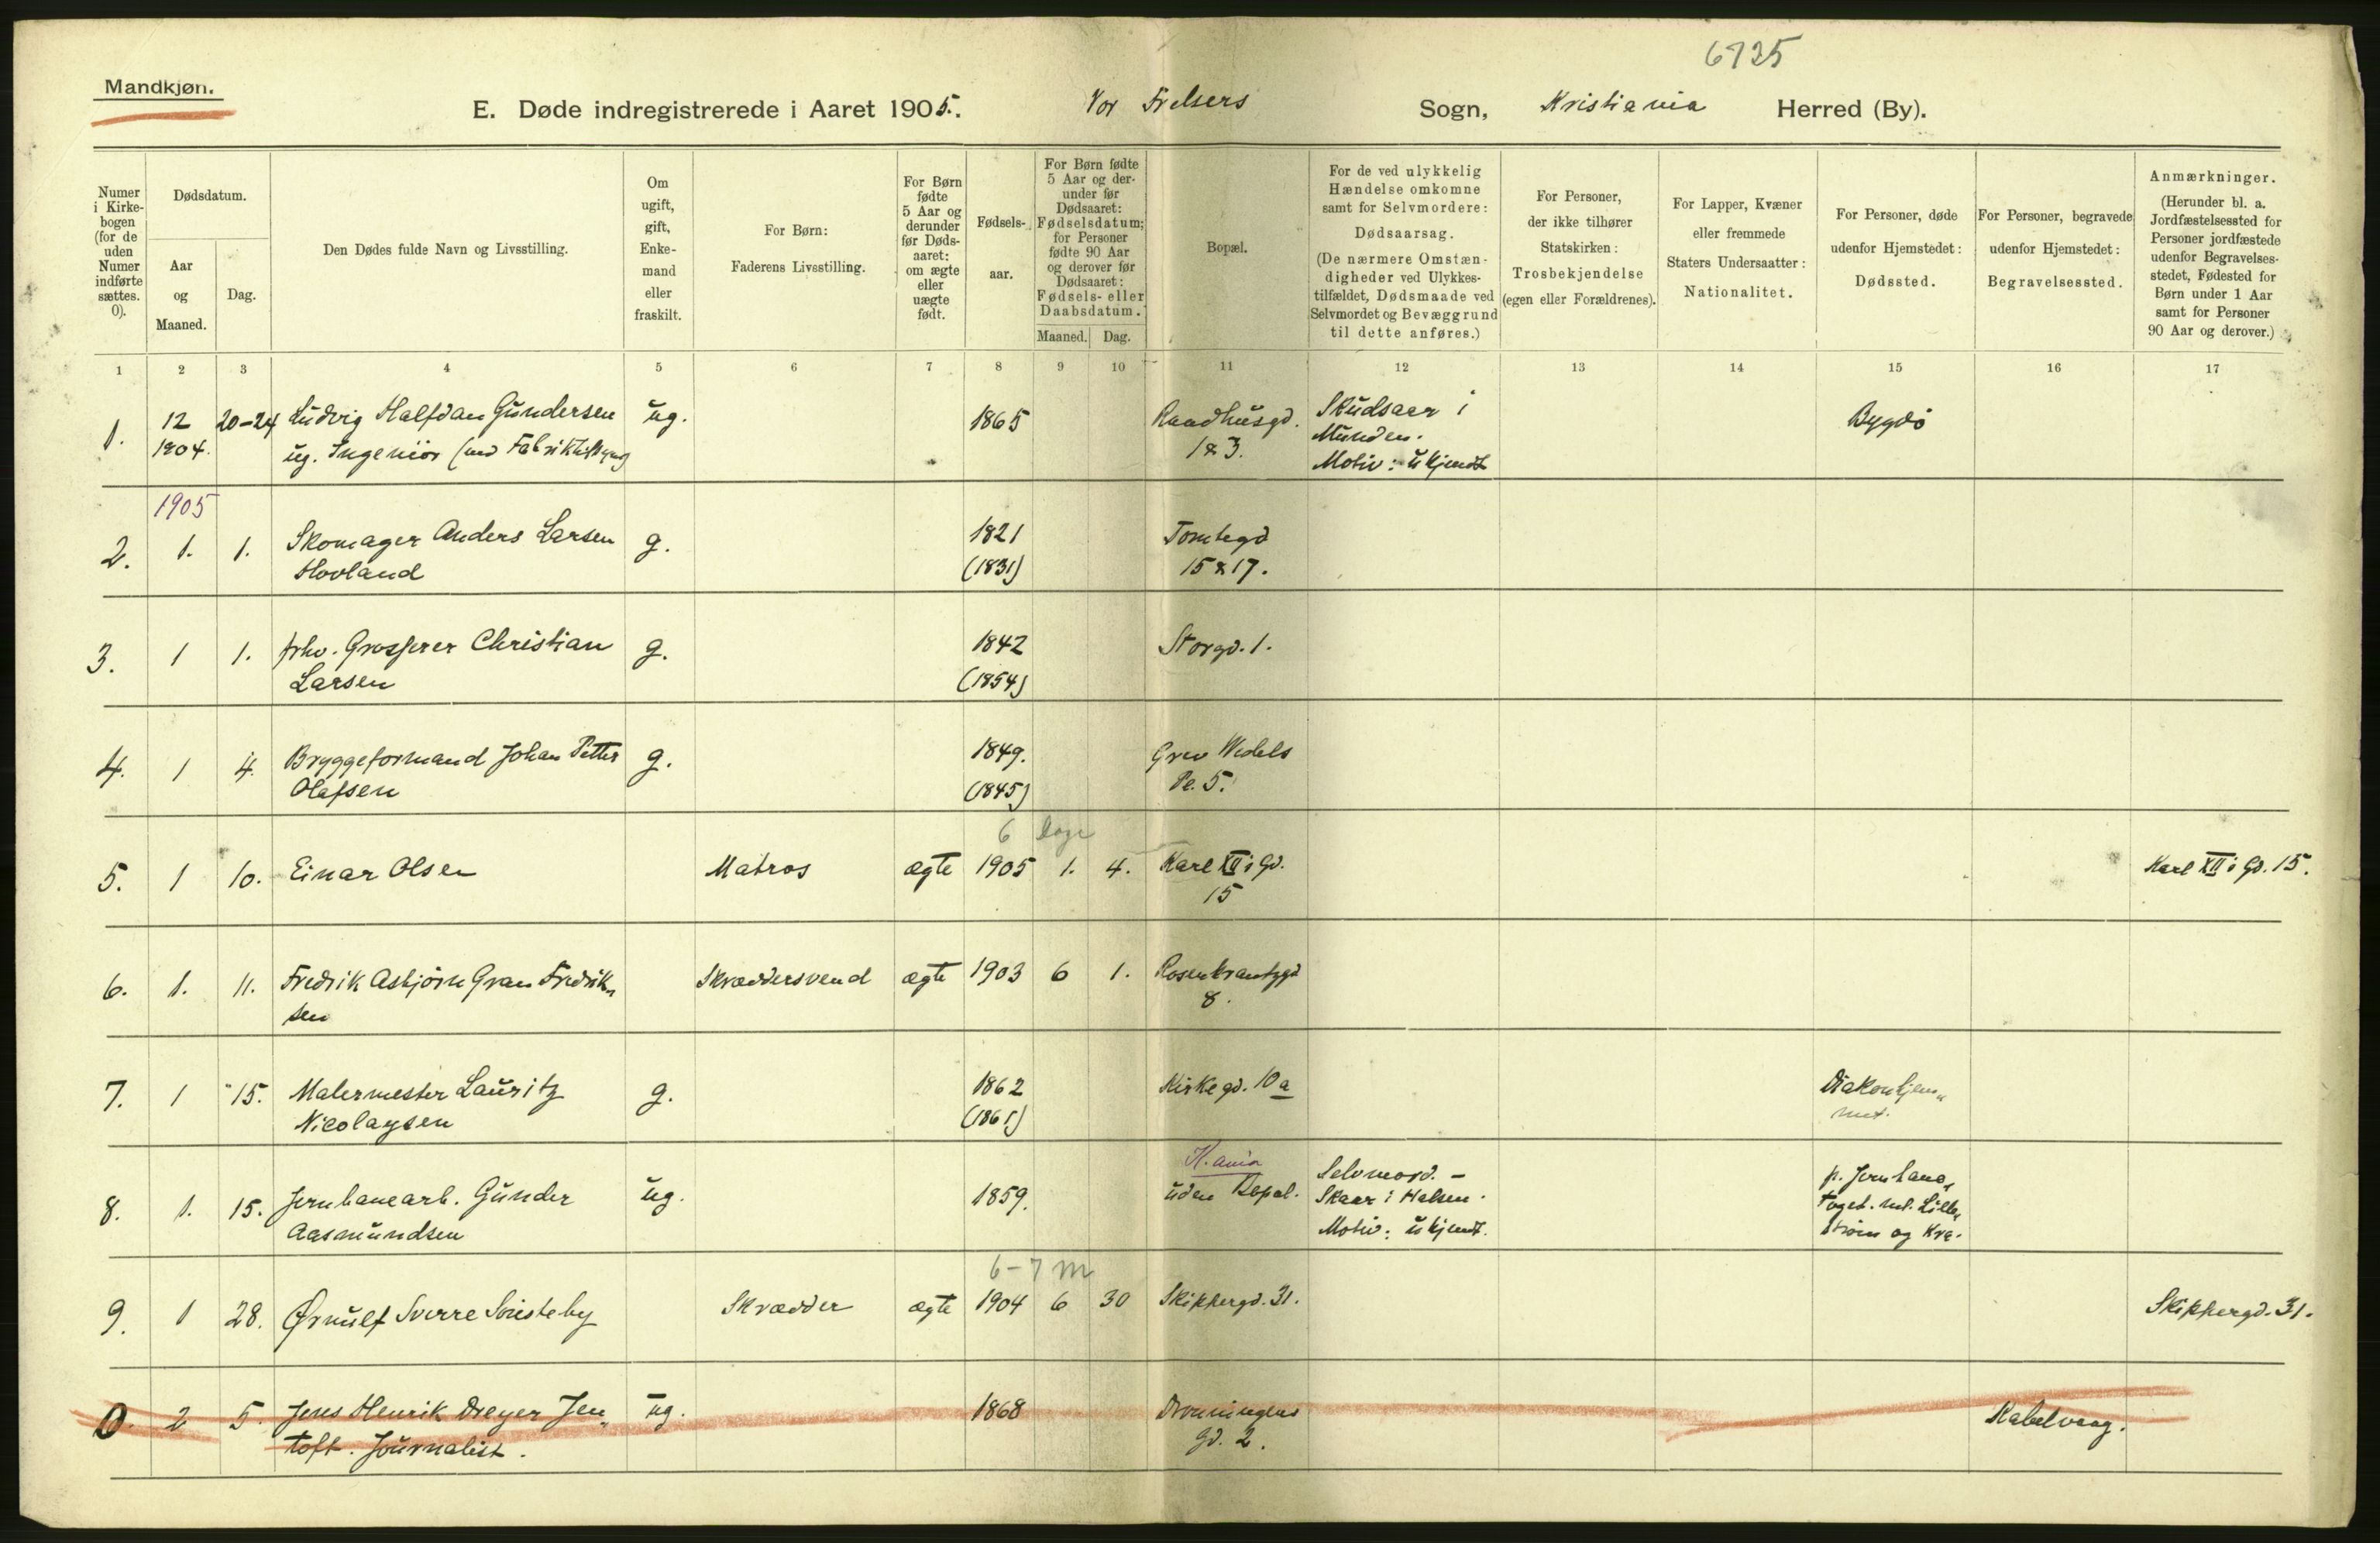 6735
Mandkjøn.
E. Døde indregistrerede i Aaret 1905. Vor Frelsers Sogn, Kristiania Herred (By).
Numer i Kirke-bogen (for de uden Numer indførte sættes. 0).
Dødsdatum.
Aar og Maaned.
Dag.
Den Dødes fulde Navn og Livsstilling.
Om ugift, gift, Enke-mand eller fraskilt.
For Børn: Faderens Livsstilling.
For Børn fødte 5 Aar og derunder før Døds-aaret: om ægte eller uægte født.
Fødsels-aar.
For Børn fødte 5 Aar og der-under før Dødsaaret: Fødselsdatum; for Personer fødte 90 Aar og derover før Dødsaaret: Fødsels- eller Daabsdatum.
Maaned. Dag.
Bopæl.
For de ved ulykkelig Hændelse omkomne samt for Selvmordere: Dødsaarsag. (De nærmere Omstæn-digheder ved Ulykkes-tilfældet, Dødsmaade ved Selvmordet og Bevæggrund til dette anføres.)
For Personer, der ikke tilhører Statskirken: Trosbekjendelse (egen eller Forældrenes).
For Lapper, Kvæner eller fremmede Staters Undersaatter: Nationalitet.
For Personer, døde udenfor Hjemstedet: Dødssted.
For Personer, begravede udenfor Hjemstedet: Begravelsessted.
Anmærkninger. (Herunder bl. a. Jordfæstelsessted for Personer jordfæstede udenfor Begravelses-stedet, Fødested for Børn under 1 Aar samt for Personer 90 Aar og derover.)
1 2 3 4 5 6 7 8 9 10 11 12 13 14 15 16 17
1. 12 20-24 Ludvig Halfdan Gundersen ug. 1865 Raadhusgd. Skudsaar i Bygdø
1904. ug. Ingeniør 1 & 3. Munden.
Motiv: ukjendt
1905
2. 1. 1. Skomager Anders Larsen g. 1821 Tomtegd
Hovland (1831) 15 & 17.
3. 1 1. frhv. Grosserer Christian g. 1842 Storgd. 1.
Larsen (1854)
4. 1 4. Bryggeformand Johan Petter g. 1849. Grev Wedels
Olafsen (1845) Pl. 5.
6 Dage
5. 1 10. Einar Olsen Matros ægte 1905 1. 4. Karl XII's Gd. Karl XII's Gd. 15.
15
6. 1. 11. Fredrik Asbjørn Gran Fredrik- Skræddersvend ægte 1903 6 1. Rosenkrantzgd
sen 8.
7. 1 15. Malermester Lauritz g. 1862 Kirkegd. 10a Diakonhjem-
Nicolaysen (1861) met.
K.ania
8. 1. 15. Jernbanearb. Gunder ug. 1859. uden Bopæl. Selvmord. - p. Jernbane-
Aasmundsen Skaar i Halsen. toget. ml. Lille-
Motiv: ukjendt. strøm og Kra.
6-7 m
9. 1 28. Ørnulf Sverre Soisteby Skrædder ægte 1904 6 30 Skippergd. 31. Skippergd. 31.
0. 2 5. Jens Henrik Dreyer Jen- ug. 1868 Dronningens Kabelvaag.
toft. Journalist. gd. 2.